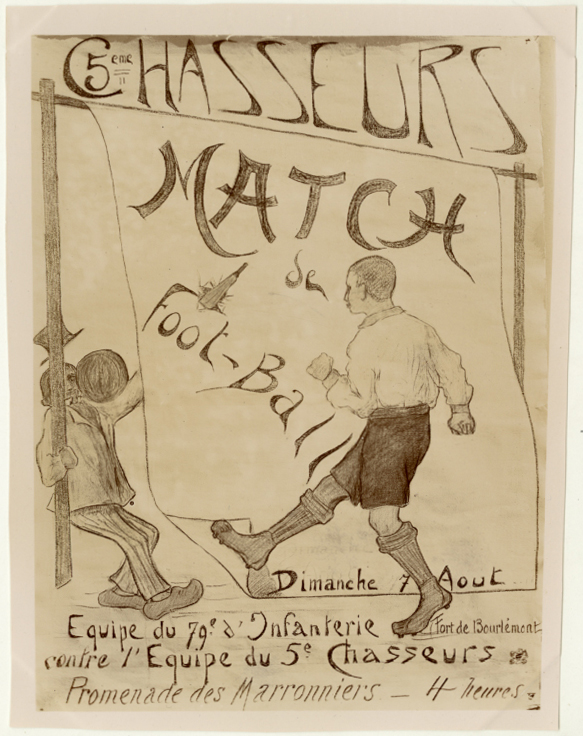 5eme CHASSEURS
MATCH
de
Foot-Ball
Dimanche 7 Aout
Equipe du 79e d'Infanterie (Fort de Bourlémont
contre l'Equipe du 5e Chasseurs
Promenade des Marronniers — 4 heures.